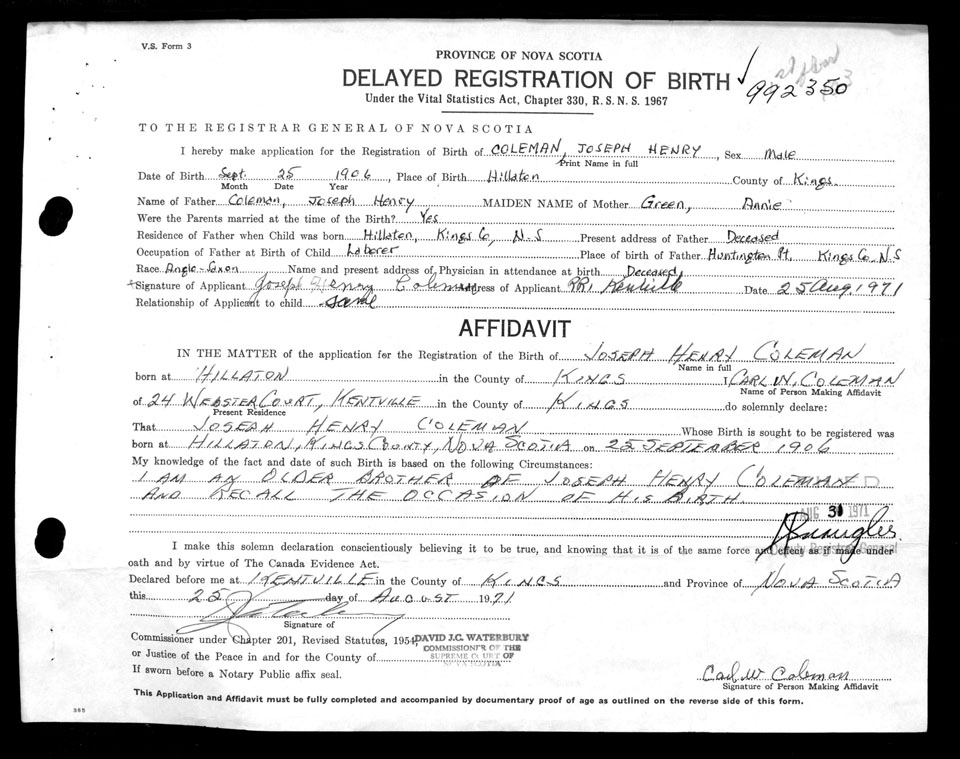 V.S. Form 3
PROVINCE OF NOVA SCOTIA
DELAYED REGISTRATION OF BIRTH ✓
992350
Under the Vital Statistics Act, Chapter 330, R.S.N.S. 1967
TO THE REGISTRAR GENERAL OF NOVA SCOTIA
I hereby make application for the Registration of Birth of COLEMAN, JOSEPH HENRY, Sex Male
Print Name in full
Date of Birth Sept. 25 1906, Place of Birth Hillaton County of Kings.
Month Date Year
Name of Father Coleman, Joseph Henry MAIDEN NAME of Mother Green, Annie
Were the Parents married at the time of the Birth? Yes
Residence of Father when Child was born Hillaten, Kings Co, N.S Present address of Father Deceased
Occupation of Father at Birth of Child Laborer Place of birth of Father Huntington Pt. Kings Co. N.S
Race Anglo-Saxon Name and present address of Physician in attendance at birth Deceased
Signature of Applicant Joseph Henry Coleman Address of Applicant RR1 Kentville Date 25 Aug, 1971
Relationship of Applicant to child same
AFFIDAVIT
IN THE MATTER of the application for the Registration of the Birth of JOSEPH HENRY COLEMAN
Name in full
born at HILLATON in the County of KINGS I, CARL W. COLEMAN
Name of Person Making Affidavit
of 24 WEBSTER COURT, KENTVILLE in the County of KINGS do solemnly declare:
Present Residence
That JOSEPH HENRY COLEMAN Whose Birth is sought to be registered was
born at HILLATON, KINGS COUNTY, NOVA SCOTIA on 25 SEPTEMBER 1906
My knowledge of the fact and date of such Birth is based on the following Circumstances:
I AM AN OLDER BROTHER OF JOSEPH HENRY COLEMAN
AND RECALL THE OCCASION OF HIS BIRTH.
AUG 31 1971
Deputy Registrar General
I make this solemn declaration conscientiously believing it to be true, and knowing that it is of the same force and effect as if made under
oath and by virtue of The Canada Evidence Act.
Declared before me at KENTVILLE in the County of KINGS and Province of NOVA SCOTIA
this 25 day of AUGUST 1971
Signature of
Commissioner under Chapter 201, Revised Statutes, 1954,
DAVID J.C. WATERBURY
COMMISSIONER OF THE
SUPREME COURT OF
NOVA SCOTIA
or Justice of the Peace in and for the County of
If sworn before a Notary Public affix seal.
Carl W Coleman
Signature of Person Making Affidavit
This Application and Affidavit must be fully completed and accompanied by documentary proof of age as outlined on the reverse side of this form.
365